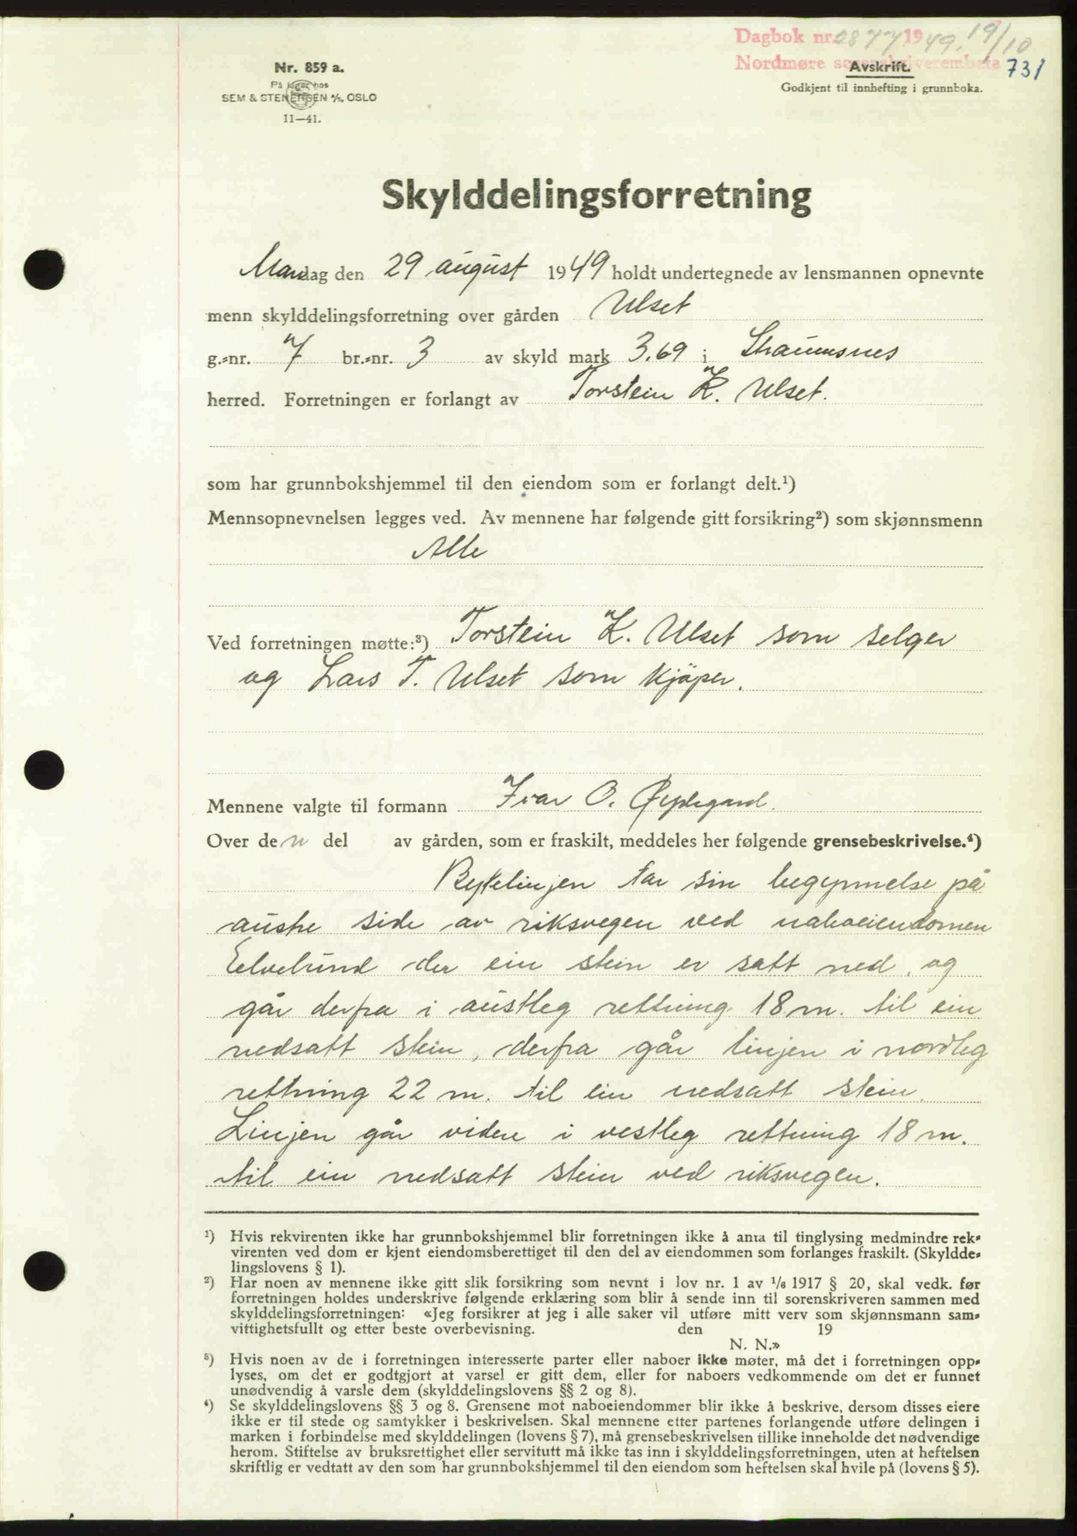 Dagbok nr. 2877 1949. 19/10
Nordmøre sorenskriverembete
Nr. 859 a.
På lager hos
SEM & STENERSEN A/S, OSLO
11—41.
Avskrift.
731
Godkjent til innhefting i grunnboka.
Skylddelingsforretning
Mandag den 29 august 1949 holdt undertegnede av lensmannen opnevnte
menn skylddelingsforretning over gården Ulset
g.-nr. 7 br.-nr. 3 av skyld mark 3.69 i Straumsnes
herred. Forretningen er forlangt av Torstein K. Ulset.
som har grunnbokshjemmel til den eiendom som er forlangt delt.¹)
Mennsopnevnelsen legges ved. Av mennene har følgende gitt forsikring²) som skjønnsmenn
Alle
Ved forretningen møtte:³) Torstein K. Ulset som selger
og Lars T. Ulset som kjöper.
Mennene valgte til formann Ivar O. Øydegard.
Over den del av gården, som er fraskilt, meddeles her følgende grensebeskrivelse.⁴)
Bytelinjen tar sin begynnelse på
austre side av riksvegen ved naboeiendomen
Eelvelund der ein stein er satt ned, og
går derfra i austleg rettning 18 m. til ein
nedsatt stein, derfra går linjen i nordleg
rettning 22 m. til ein nedsatt stein.
Linjen går videre i vestleg rettning 18 m.
til ein nedsatt stein ved riksvegen.
¹) Hvis rekvirenten ikke har grunnbokshjemmel blir forretningen ikke å anta til tinglysing medmindre rek-
virenten ved dom er kjent eiendomsberettiget til den del av eiendommen som forlanges fraskilt. (Skyldde-
lingslovens § 1).
²) Har noen av mennene ikke gitt slik forsikring som nevnt i lov nr. 1 av 1/6 1917 § 20, skal vedk. før
forretningen holdes underskrive følgende erklæring som blir å sende inn til sorenskriveren sammen med
skylddelingsforretningen: «Jeg forsikrer at jeg i alle saker vil utføre mitt verv som skjønnsmann sam-
vittighetsfullt og etter beste overbevisning. den 19
N. N.»
³) Hvis noen av de i forretningen interesserte parter eller naboer ikke møter, må det i forretningen opp-
lyses, om det er godtgjort at varsel er gitt dem, eller for naboers vedkommende om det er funnet
unødvendig å varsle dem (skylddelingslovens §§ 2 og 8).
⁴) Se skylddelingslovens §§ 3 og 8. Grensene mot naboeiendommer blir ikke å beskrive, dersom disses eiere
ikke er til stede og samtykker i beskrivelsen. Skal mennene etter partenes forlangende utføre delingen i
marken i forbindelse med skylddelingen (lovens § 7), må grensebeskrivelsen tillike inneholde det nødvendige
herom. Stiftelse av bruksrettighet eller servitutt må ikke tas inn i skylddelingsforretningen, uten at heftelsen
skriftlig er vedtatt av den som har grunnbokshjemmel til den eiendom som heftelsen skal hvile på (lovens § 5).